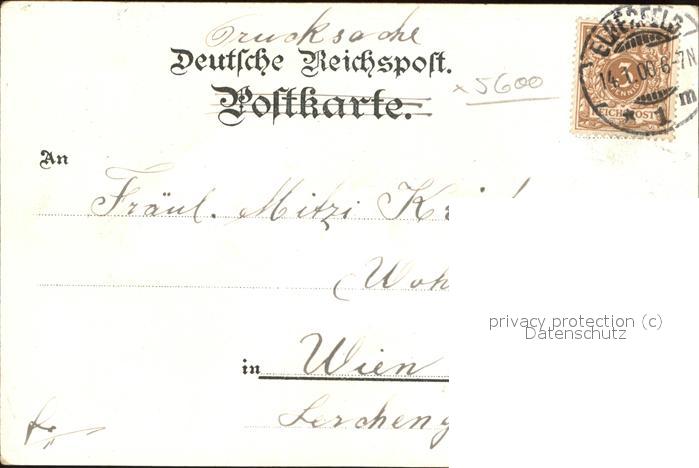 Drucksache
Deutsche Reichspost.
Postkarte.
x 5600
ELBERFELD
14.1.00 6-7N
* 1 m
3
REICHSPOST
An
Fräul. Mitzi
Woh
in Wien
Lercheng
privacy protection (c)
Datenschutz